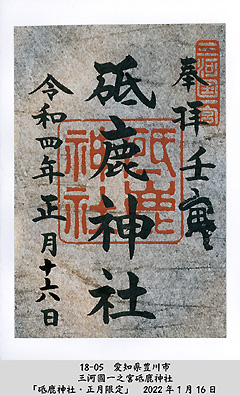 奉拝 壬寅
三河国一宮
砥鹿神社
砥鹿神社
令和四年正月十六日
18-05 愛知県豊川市
三河國一之宮砥鹿神社
「砥鹿神社・正月限定」 2022年1月16日